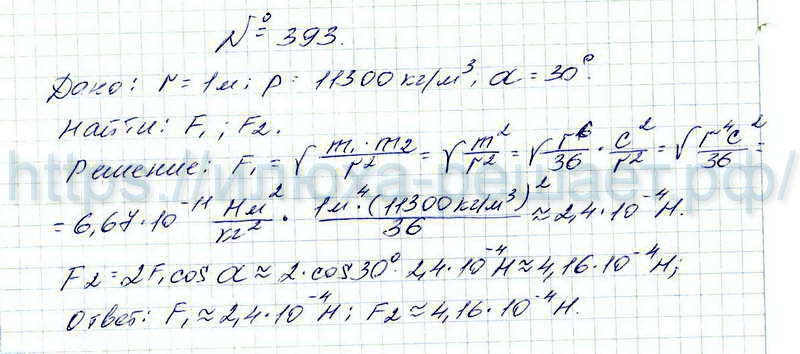 № 393.
Дано: r = 1м; ρ = 11300 кг/м³, α = 30°.
Найти: F₁; F₂.
Решение: F₁ = γ m₁·m₂/r² = γ m²/r² = γ r⁶/36 · ρ²/r² = γ r⁴ρ²/36 =
= 6,67·10⁻¹¹ Нм²/кг² · 1м⁴·(11300кг/м³)²/36 ≈ 2,4·10⁻⁴Н.
F₂ = 2F₁cos α ≈ 2·cos30°·2,4·10⁻⁴Н ≈ 4,16·10⁻⁴Н;
Ответ: F₁ ≈ 2,4·10⁻⁴Н; F₂ ≈ 4,16·10⁻⁴Н.